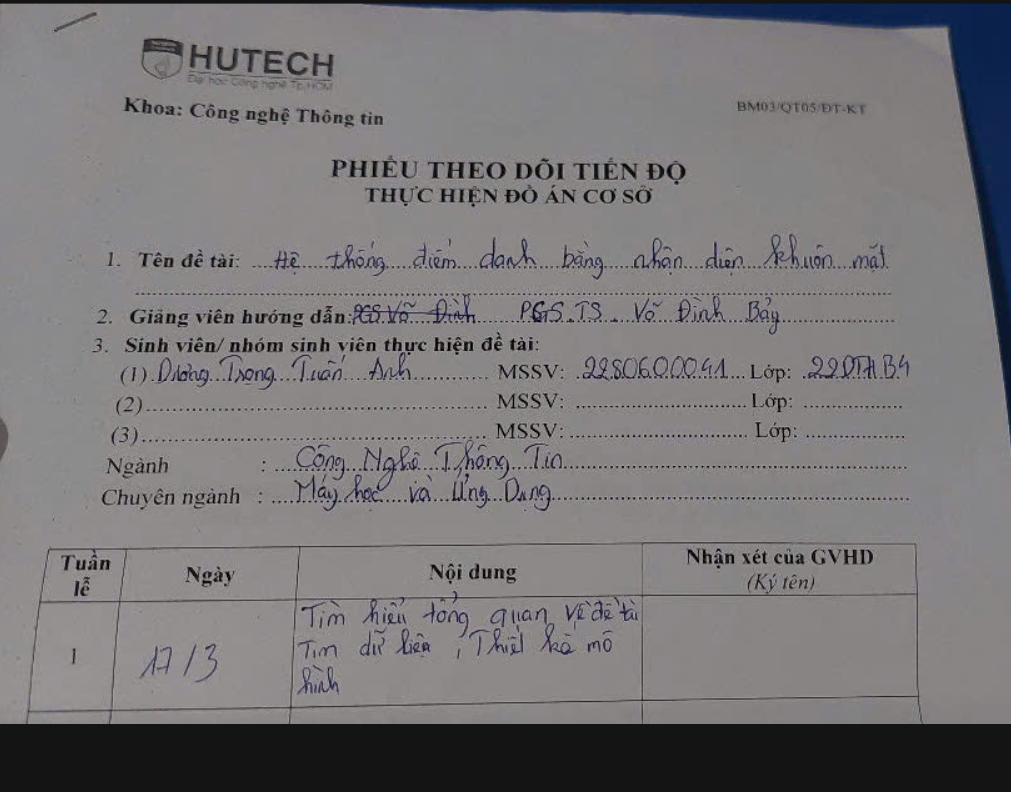 HUTECH
Đại học Công nghệ Tp.HCM
Khoa: Công nghệ Thông tin
BM03/QT05/ĐT-KT
PHIẾU THEO DÕI TIẾN ĐỘ
THỰC HIỆN ĐỒ ÁN CƠ SỞ
1. Tên đề tài: Hệ thống điểm danh bằng nhận diện khuôn mặt
2. Giảng viên hướng dẫn: PGS Võ Đình PGS.TS. Võ Đình Bảy
3. Sinh viên/ nhóm sinh viên thực hiện đề tài:
(1) Dương Trọng Tuấn Anh MSSV: 2280600041 Lớp: 22DTHB4
(2) MSSV: Lớp:
(3) MSSV: Lớp:
Ngành : Công Nghệ Thông Tin
Chuyên ngành : Máy học và Ứng Dụng
Tuần lễ Ngày Nội dung Nhận xét của GVHD
(Ký tên)
1 17/3 Tìm hiểu tổng quan về đề tài
Tìm dữ liệu, Thiết kế mô
hình